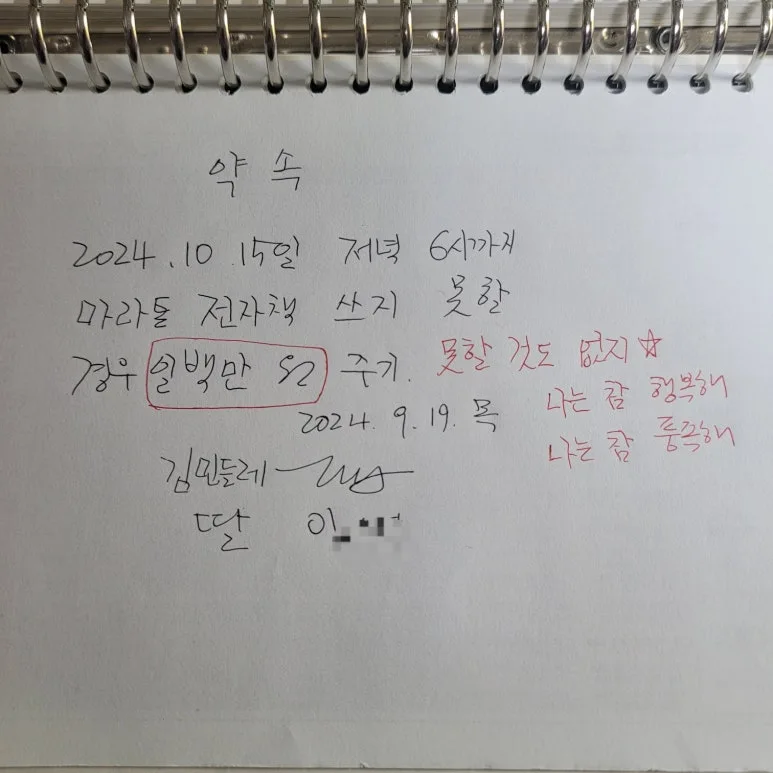 약 속
2024.10.15일 저녁 6시까지
마라톤 전자책 쓰지 못할
경우 일백만 원 주기. 못할 것도 없지☆
2024. 9. 19. 목 나는 참 행복해
나는 참 풍족해
김민들레
딸 이